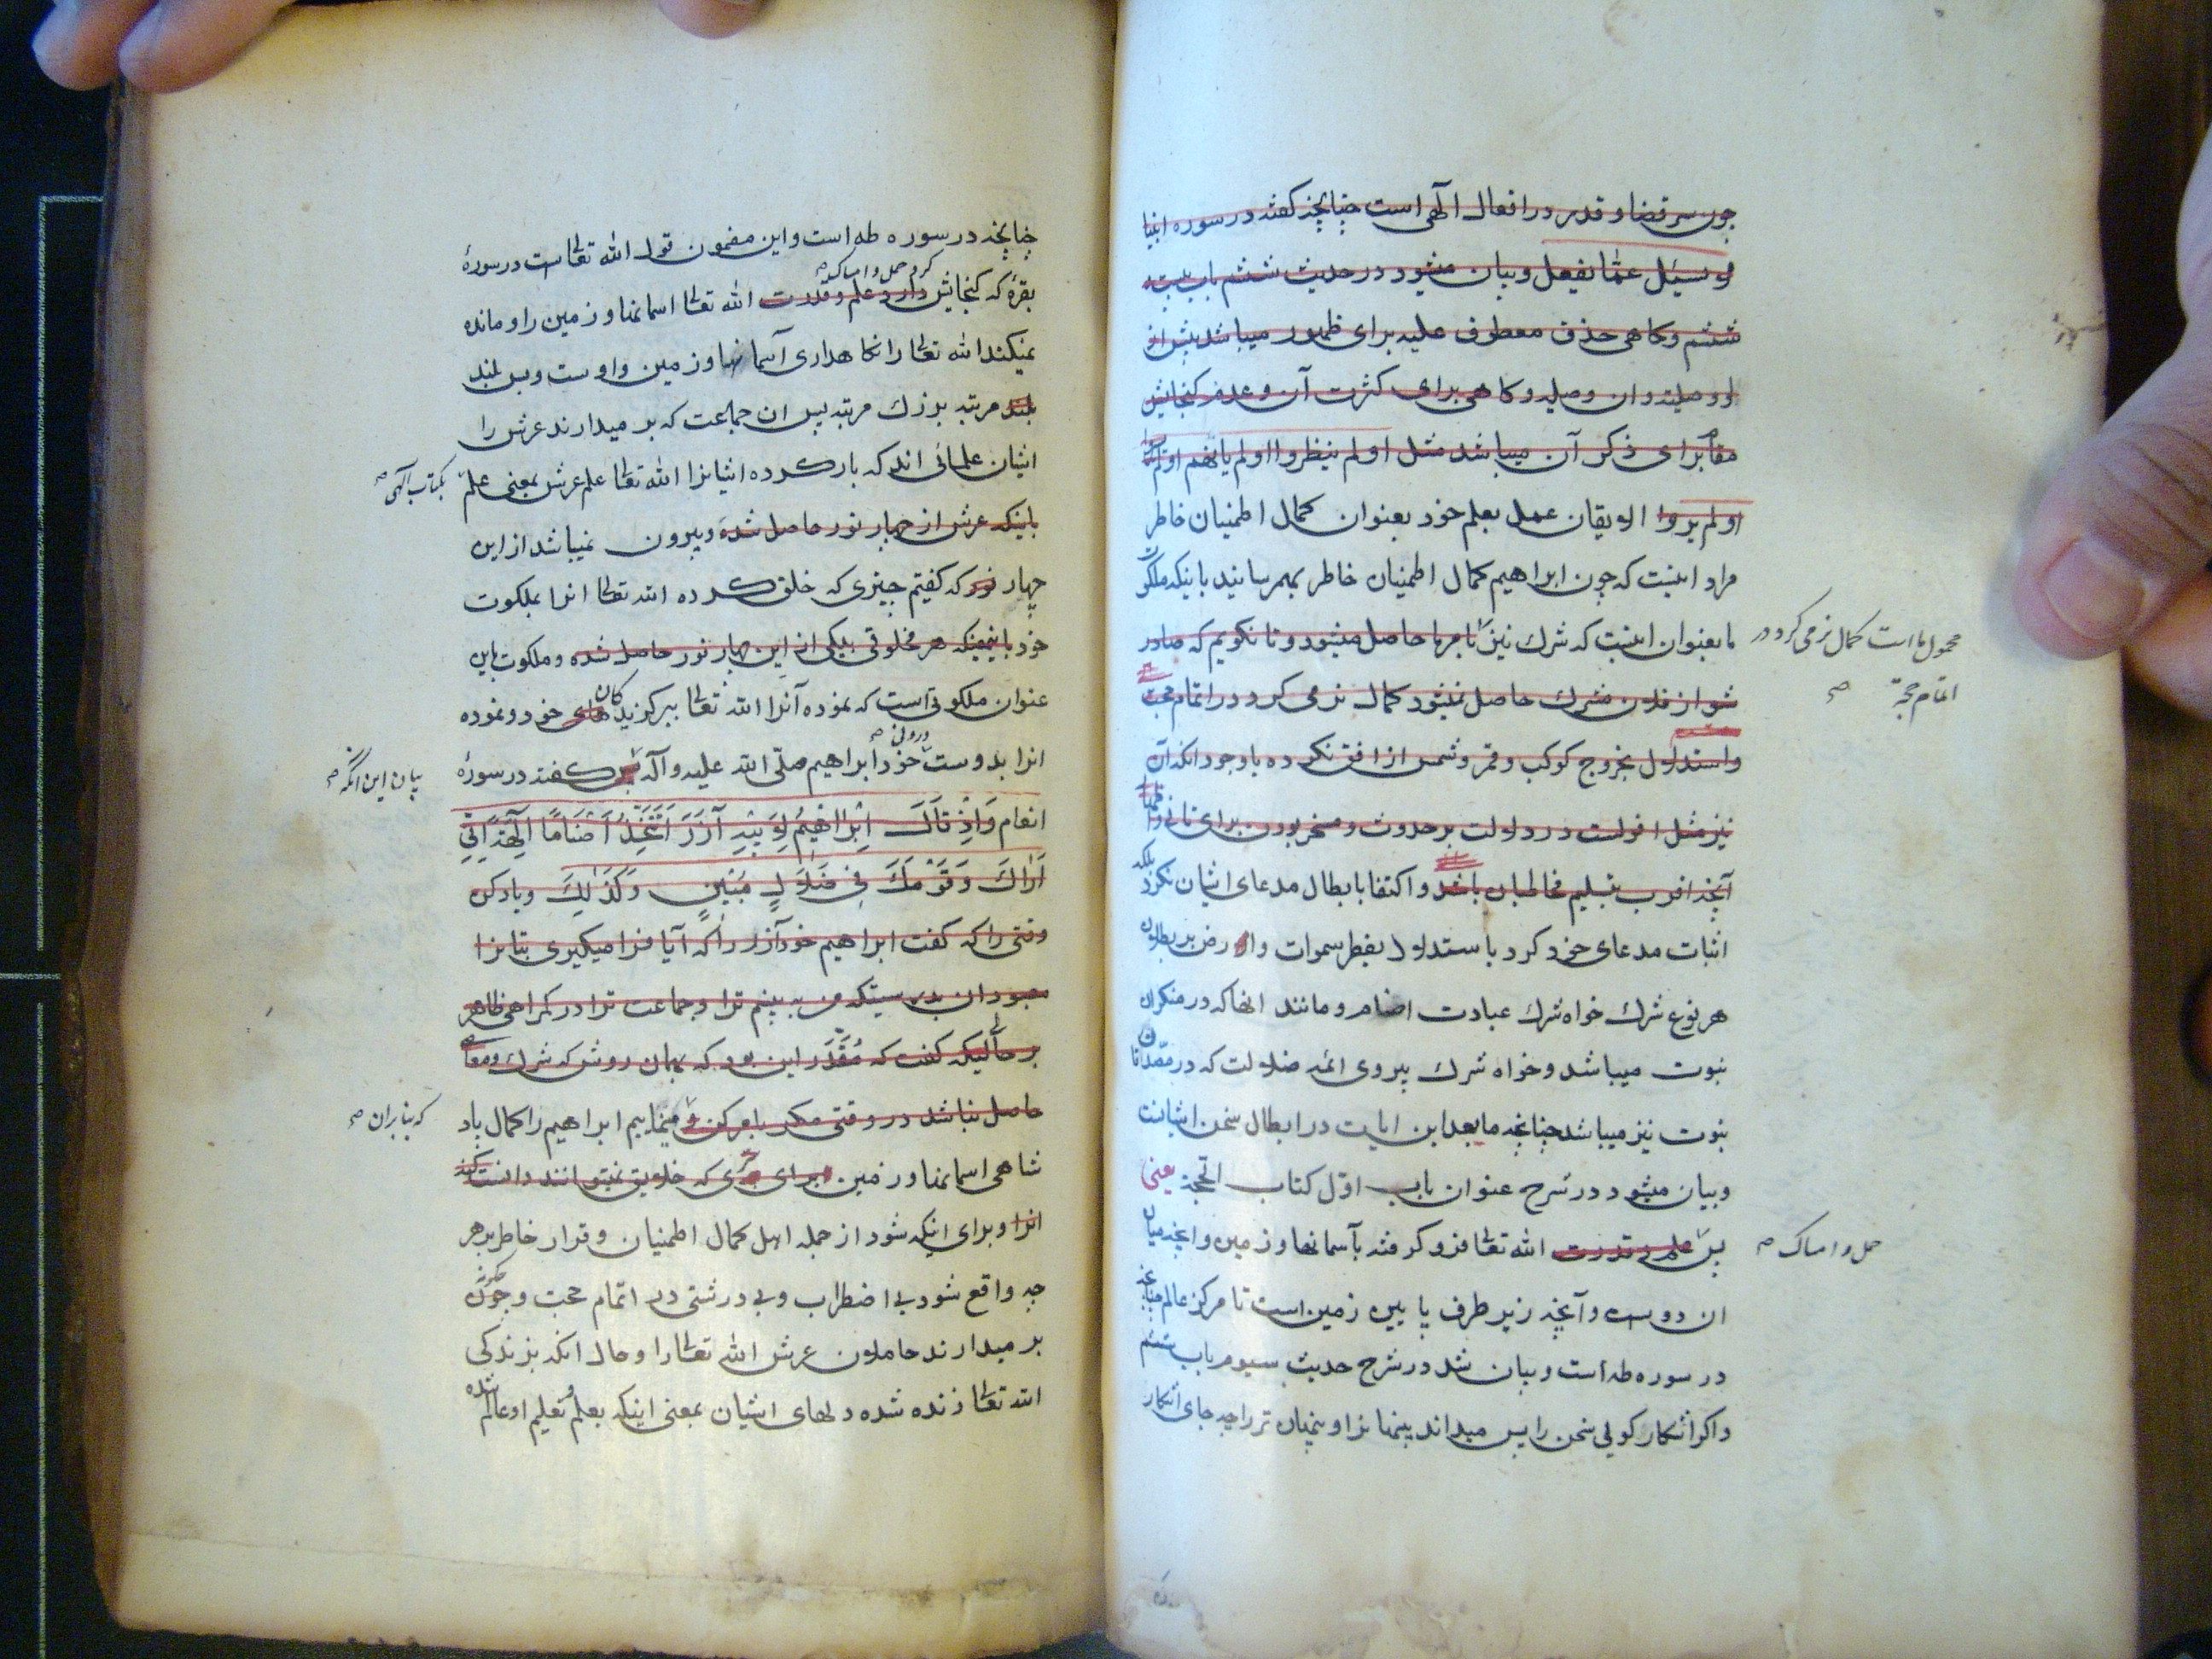 چون سر قضا و قدر در افعال الهی است چنانچه گفته در سوره انبیا
لا یسئل عما یفعل و بیان میشود در حدیث ششم باب بیست
ششم و کاهی حذف معطوف علیه برای ظهور میباشد مثل ان
لو وصلیه و ان وصلیه و کاهی برای کثرت آن و عدم کنجایش
مقام برای ذکر آن میباشد مثل اولم ینظروا اولم یاتهم
اولم یروا الایقان عمل بعلم خود بعنوان کمال اطمنیان خاطر
مراد اینست که چون ابراهیم کمال اطمنیان خاطر بهمرسانید باینکه ملکوت
ما بعنوان اینست که شرك نیز با مرما حاصل میشود و تا نکوییم که صادر
محمول ما است کمال نرمی کرد در
شو از فلان مشرك حاصل نمیشود کمال نرمی کرد در اتمام حجت
اتمام حجة صح
و استدلال بخروج کوکب و قمر و شمس از افق نکرده با وجود انکه آن
نیز مثل افولست در دلالت بر حدوث و مسخر بودن برای
آنچه اقرب بتسلیم مخاطبان باشد و اکتفا بابطال مدعای ایشان نکرد بلکه
اثبات مدعای خود کرد باستدلال بفطر سموات وارض بر بطلان
هر نوع شرك خواه شرك عبادت اصنام و مانند انها که در منکران
نبوت میباشد و خواه شرك پیروی ائمه ضلالت که در مصدقان
نبوت نیز میباشد چنانچه ما بعد این ایات در ابطال سخن ایشانست
و بیان میشود در شرح عنوان باب اول کتاب الحجة یعنی
پس علم و قدرت الله تعالی فرو کرفته بآسمانها و زمین و انچه میان
حمل و امساک صح
ان دوست و آنچه زیر طرف پایین زمین است تا مرکز عالم چنانچه
در سوره طه است و بیان شد در شرح حدیث سیوم باب ششم
و اکر اشکار کویی سخن را پس میداند پنهانرا و پنهان تر را چه جای اشکار
چنانچه در سوره طه است و این مضمون قول الله تعالی است در سورهٔ
کرد حمل و امساک صح
بقره که کنجایش دارد علم و قدرت الله تعالی اسمانها و زمین را و مانده
نمیکند الله تعالی را نکاهداری آسمانها و زمین و اوست و بس بلند
بلند مرتبه بزرك مرتبه پس ان جماعت که بر میدارند عرش را
ایشان علمائی اند که بار کرده ایشانرا الله تعالی علم عرش بمعنی علم
بکتاب الهی صح
باینکه عرش از چهار نور حاصل شده و بیرون نمیباشد از این
چهار نور که کفتیم چیزی که خلق کرده الله تعالی انرا بملکوت
خود باینمعنیکه هر مخلوقی بیکی از این چهار نور حاصل شده و ملکوت باین
عنوان ملکوتی است که نموده آنرا الله تعالی ببرکزیدکان های خود و نموده
انرا بدوست خود ابراهیم صلی الله علیه و آله پس کفته در سورهٔ
بیان این انکه صح
انعام وَاِذْ قَالَ اِبْرٰاهِیمُ لِاَبِیهِ آزَرَ اَتَتَّخِذُ اَصْنَامًا اٰلِهَةً اِنِّی
اَرٰاكَ وَقَوْمَكَ فِی ضَلَالٍ مُبِینٍ وَكَذٰلِكَ و یاد کن
وقتی را که کفت ابراهیم خود آزر را که آیا فرا میکیری بتانرا
معبودان بدرستیکه من به بینم ترا و جماعت ترا در کمراهی ظاهر
بر حالیکه کفت که مُقَدَّر این بود که بهمان روش که شرك
حاصل نباشد در وقتی مکر بامر کن و مینماییم ابراهیم را کمال پاد
که بنابران صح
شاهی اسمانها و زمین برای که خلایق نمیتوانند دانست
انرا و برای اینکه شود از جمله اهل کمال اطمنیان و قرار خاطر بر هر
چه واقع شود بی اضطراب و بی درشتی در اتمام حجت و چون
چکونه
بر میدارند حاملان عرش الله تعالی را و حال انکه بزندکی
الله تعالی زنده شده دلهای ایشان بمعنی اینکه بعلم و تعلیم او عالم شده